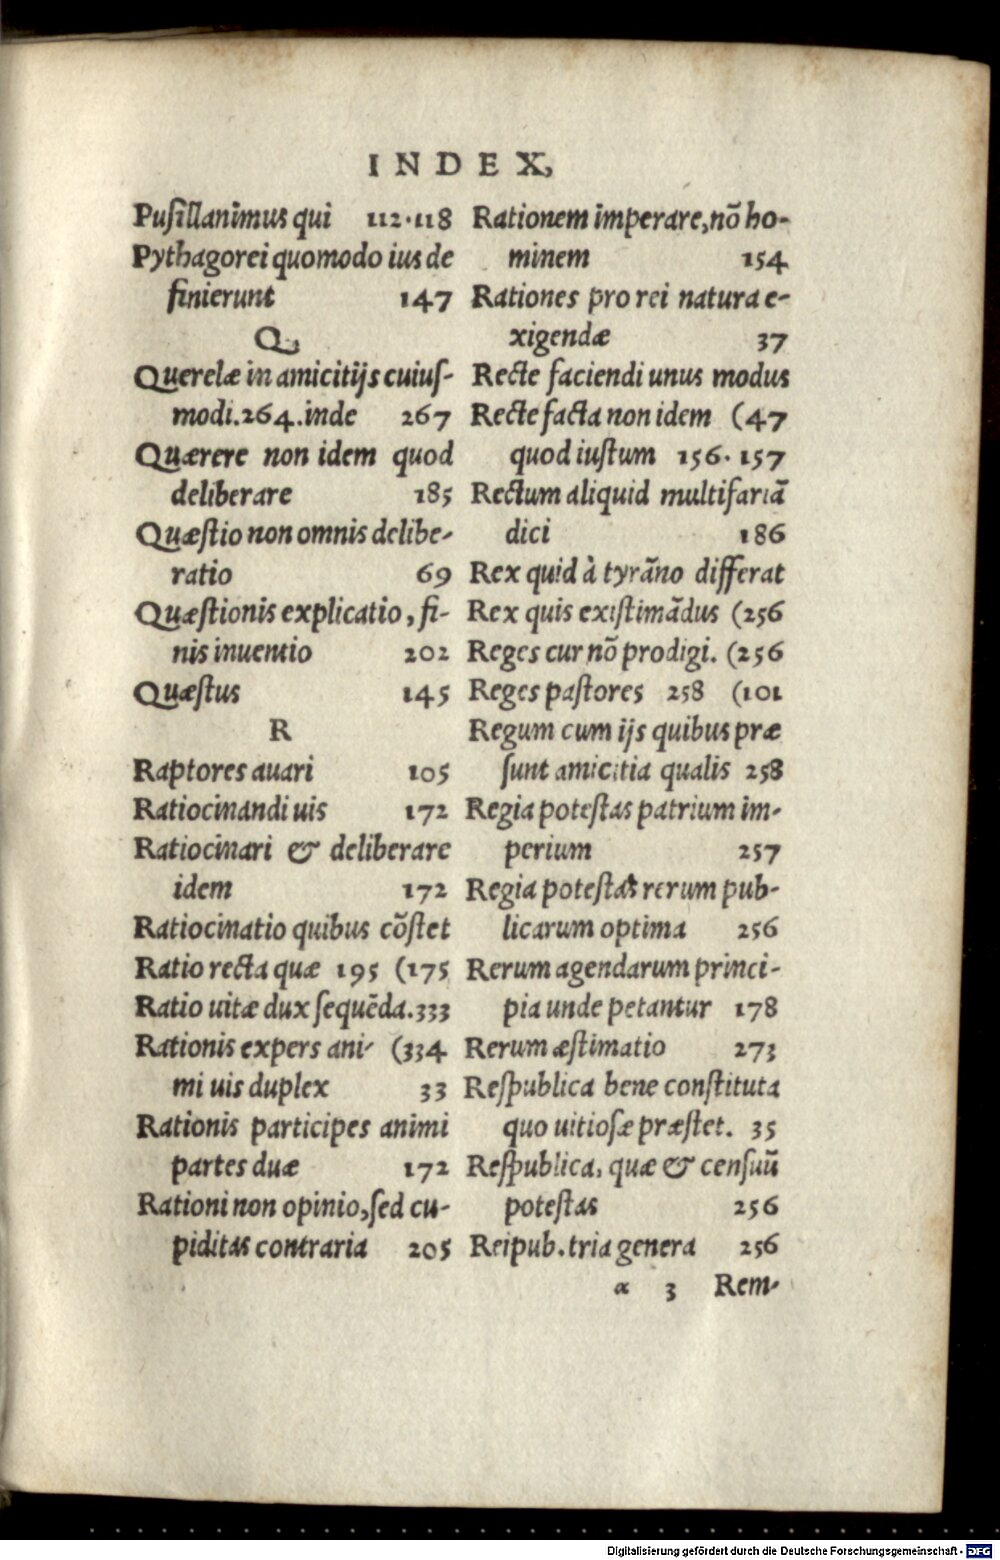 INDEX,
Pusillanimus qui 112·118
Pythagorei quomodo ius de
finierunt 147
Q
Querelæ in amicitijs cuius-
modi.264.inde 267
Quærere non idem quod
deliberare 185
Quæstio non omnis delibe-
ratio 69
Quæstionis explicatio, fi-
nis inuentio 202
Quæstus 145
R
Raptores auari 105
Ratiocinandi uis 172
Ratiocinari & deliberare
idem 172
Ratiocinatio quibus cõstet
Ratio recta quæ 195 (175
Ratio uitæ dux sequẽda.333
Rationis expers ani- (334
mi uis duplex 33
Rationis participes animi
partes duæ 172
Rationi non opinio, sed cu-
piditas contraria 205
Rationem imperare, nõ ho-
minem 154
Rationes pro rei natura e-
xigendæ 37
Recte faciendi unus modus
Recte facta non idem (47
quod iustum 156·157
Rectum aliquid multifariã
dici 186
Rex quid à tyrãno differat
Rex quis existimãdus (256
Reges cur nõ prodigi. (256
Reges pastores 258 (101
Regum cum ijs quibus præ
sunt amicitia qualis 258
Regia potestas patrium im-
perium 257
Regia potestas rerum pub-
licarum optima 256
Rerum agendarum princi-
pia unde petantur 178
Rerum æstimatio 273
Respublica bene constituta
quo uitiosæ præstet. 35
Respublica, quæ & censuũ
potestas 256
Reipub. tria genera 256
α 3 Rem-
Digitalisierung gefördert durch die Deutsche Forschungsgemeinschaft - DFG